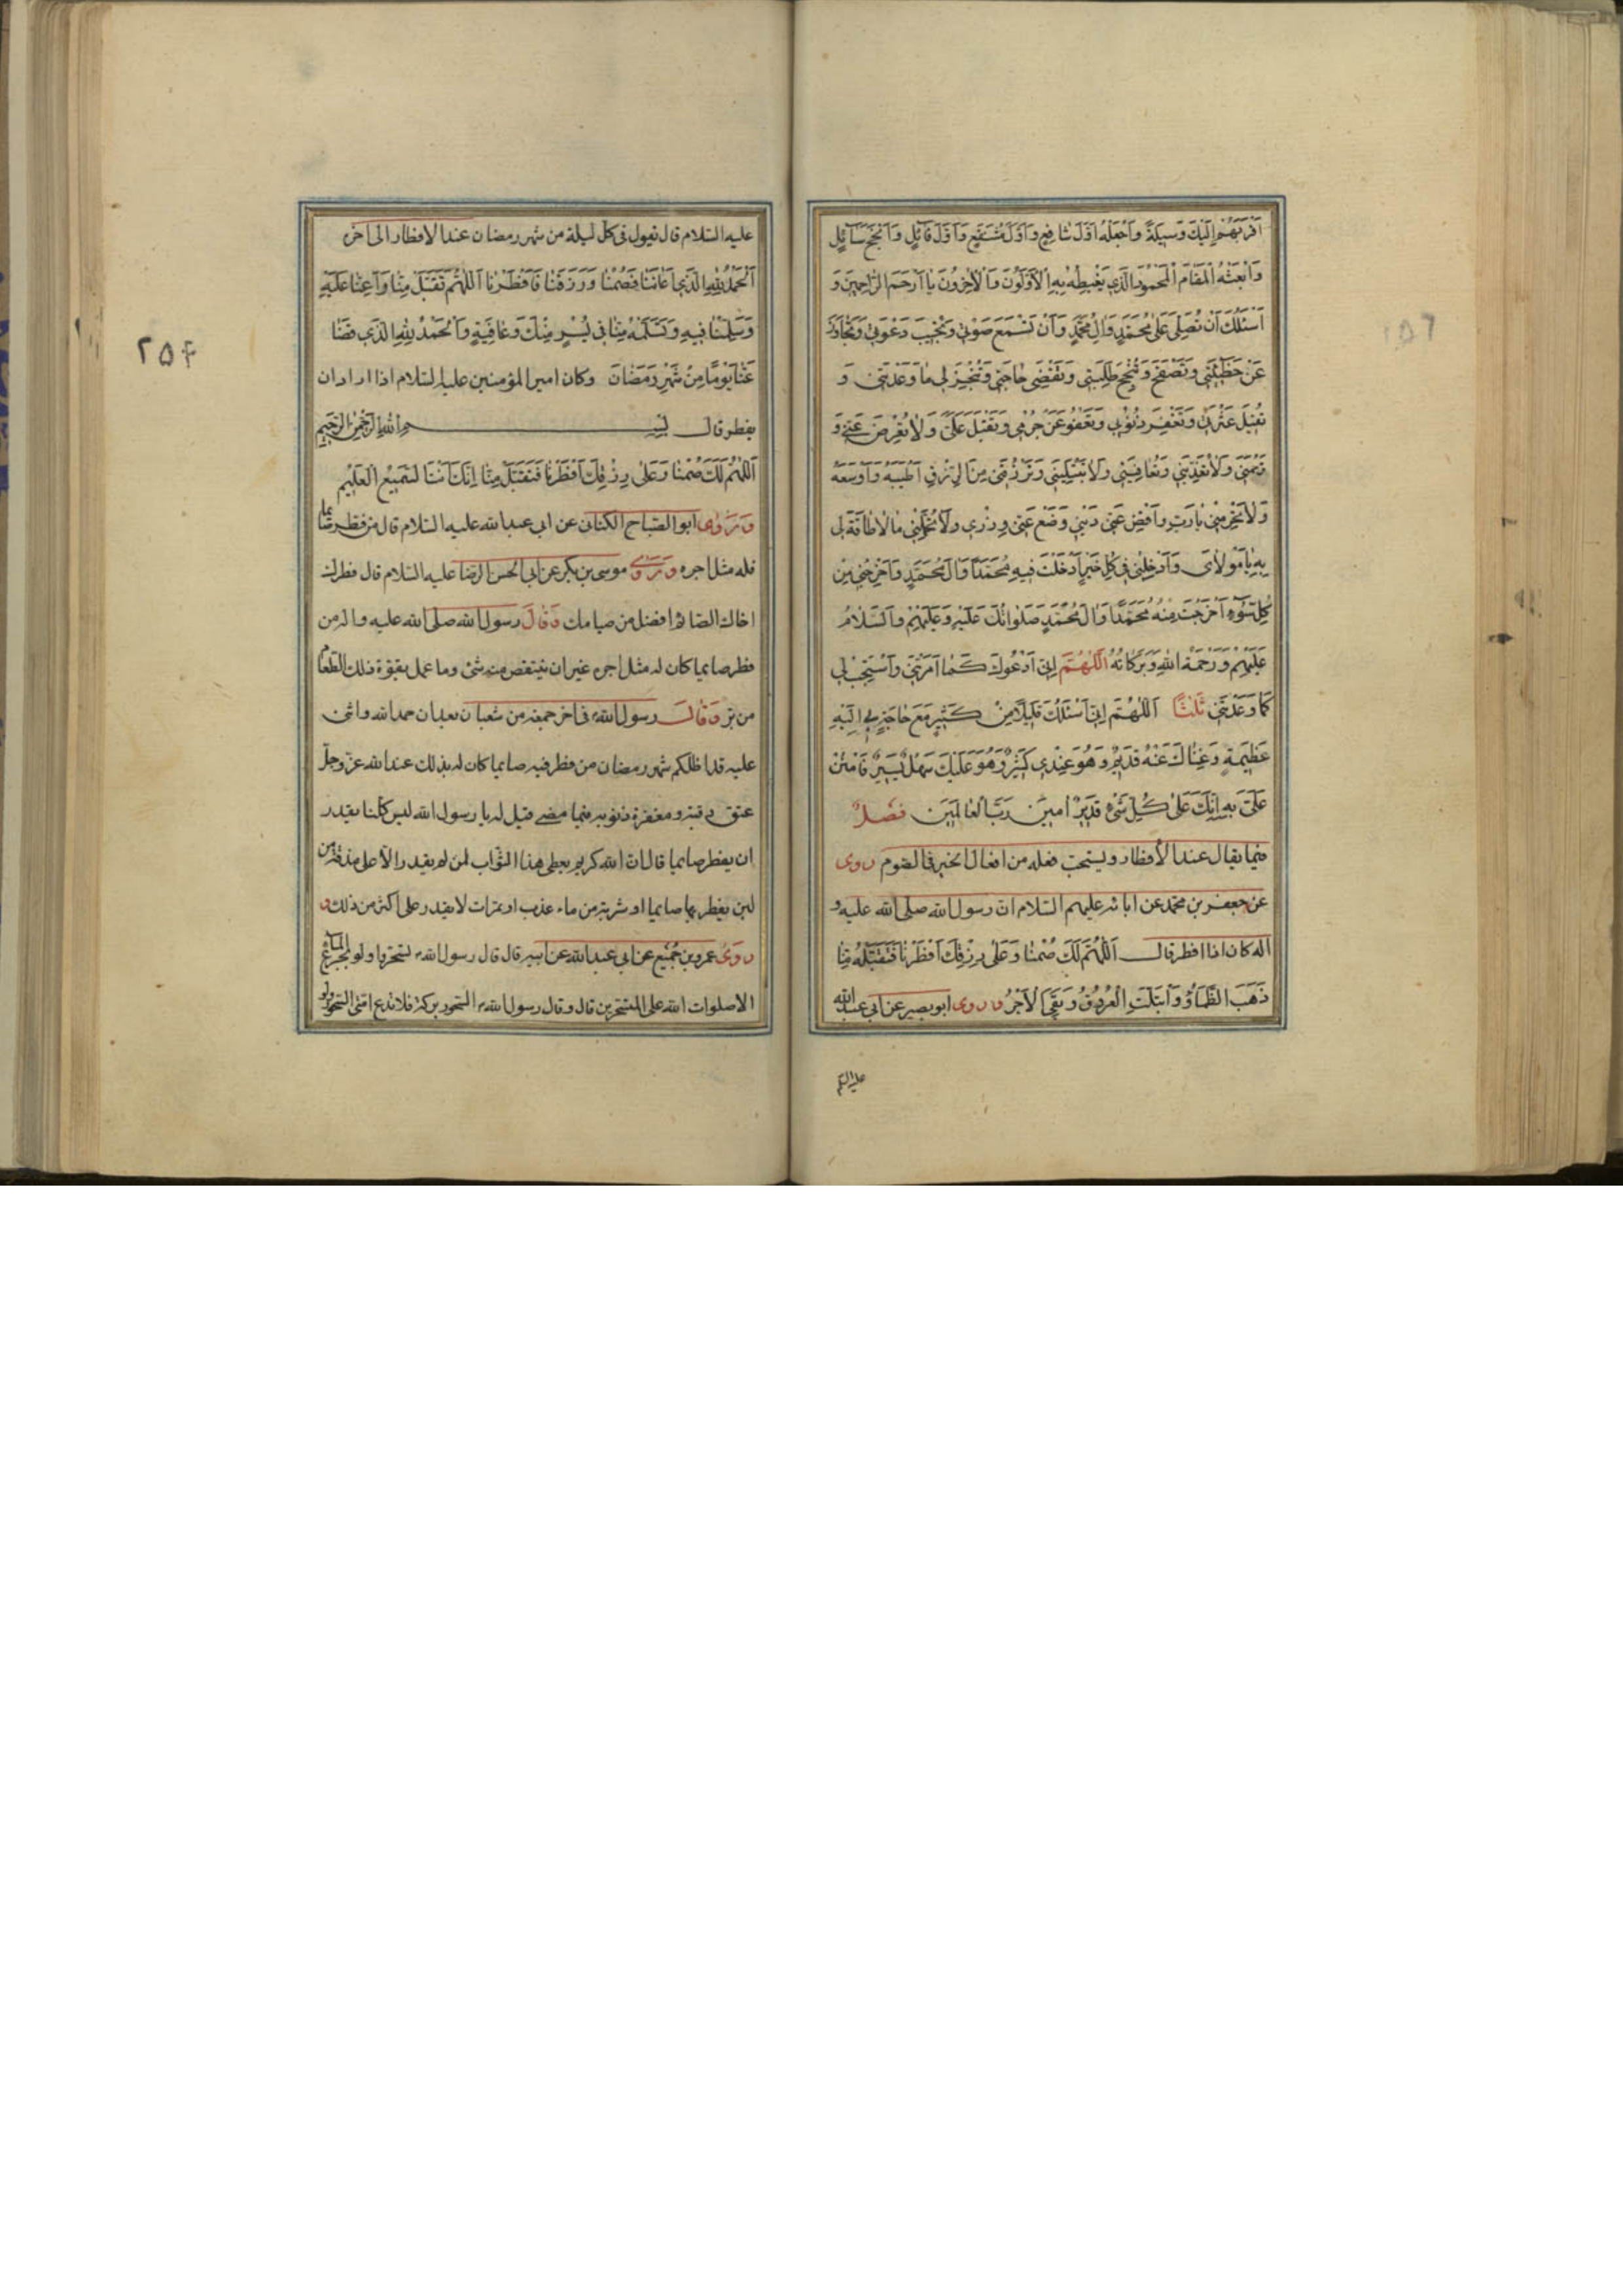 اَقْرَبَهُمْ اِلَيْكَ وَسيلَةً وَاجْعَلْهُ اَوَّلَ شافِعٍ وَاَوَّلَ مُشَفَّعٍ وَاَوَّلَ قآئِلٍ وَاَنْجَحَ سآئِلٍ
وَابْعَثْهُ الْمَقامَ الْمَحْمُودَ الَّذي يَغْبِطُهُ بِهِ الْاَوَّلُونَ وَالْاخِرُونَ يا اَرْحَمَ الرّاحِمينَ وَ
اَسْئَلُكَ اَنْ تُصَلِّيَ عَلى مُحَمَّدٍ وَالِ مُحَمَّدٍ وَاَنْ تَسْمَعَ صَوْتي وَتُجيبَ دَعْوَتي وَتَجاوَزَ
عَنْ خَطيئَتي وَتَصْفَحَ وَتُنْجِحَ طَلِبَتي وَتَقْضِيَ حاجَتي وَتُنْجِزَ لي ما وَعَدْتَني وَ
تُقيلَ عَثْرَتي وَتَغْفِرَ ذُنُوبي وَتَعْفُوَ عَنْ جُرْمي وَتُقْبِلَ عَلَيَّ وَلا تُعْرِضَ عَنّي وَ
تَرْحَمَني وَلا تُعَذِّبَني وَتُعافِيَني وَلا تَبْتَلِيَني وَتَرْزُقَني مِنَ الرِّزْقِ اَطْيَبَهُ وَاَوْسَعَهُ
وَلا تَحْرِمْني يا رَبِّ وَاقْضِ عَنّي دَيْني وَضَعْ عَنّي وِزْري وَلا تُحَمِّلْني ما لا طاقَةَ لي
بِهِ يا مَوْلايَ وَاَدْخِلْني في كُلِّ خَيْرٍ اَدْخَلْتَ فيهِ مُحَمَّداً وَالَ مُحَمَّدٍ وَاَخْرِجْني مِنْ
كُلِّ سُوءٍ اَخْرَجْتَ مِنْهُ مُحَمَّداً وَالَ مُحَمَّدٍ صَلَواتُكَ عَلَيْهِ وَعَلَيْهِمْ وَالسَّلامُ
عَلَيْهِمْ وَرَحْمَةُ اللهِ وَبَرَكاتُهُ اَللّهُمَّ اِنّي اَدْعُوكَ كَما اَمَرْتَني وَاسْتَجِبْ لي
كَما وَعَدْتَني ثَلثاً اَللّهُمَّ اِنّي اَسْئَلُكَ قَليلاً مِنْ كَثيرٍ مَعَ حاجَةٍ بي اِلَيْهِ
عَظيمَةٍ وَغِناكَ عَنْهُ قَديمٌ وَهُوَ عِنْدي كَثيرٌ وَهُوَ عَلَيْكَ سَهْلٌ يَسيرٌ فَامْنُنْ
عَلَيَّ بِهِ اِنَّكَ عَلى كُلِّ شَيْءٍ قَديرٌ امينَ رَبَّ الْعالَمينَ فصل
فيما يقال عند الأفطار ويستحب فعله من افعال الخير في الصوم روى
عن جعفر بن محمد عن ابائه عليهم السلام ان رسول الله صلى الله عليه و
اله كان اذا افطر قال اَللّهُمَّ لَكَ صُمْنا وَعَلى رِزْقِكَ اَفْطَرْنا فَتَقَبَّلْهُ مِنّا
ذَهَبَ الظَّمَأُ وَابْتَلَّتِ الْعُرُوقُ وَبَقِيَ الْاَجْرُ وروى ابو بصير عن ابي عبد الله
عليه السلم
عليه السلام قال تقول في كل ليلة من شهر رمضان عند الافطار الى اخره
اَلْحَمْدُ لِلّهِ الَّذي اَعانَنا فَصُمْنا وَرَزَقَنا فَاَفْطَرْنا اَللّهُمَّ تَقَبَّلْ مِنّا وَاَعِنّا عَلَيْهِ
وَسَلِّمْنا فيهِ وَتَسَلَّمْهُ مِنّا في يُسْرٍ مِنْكَ وَعافِيَةٍ وَالْحَمْدُ لِلّهِ الَّذي قَضى
عَنّا يَوْماً مِنْ شَهْرِ رَمَضانَ وكان امير المؤمنين عليه السلام اذا اراد ان
يفطر قال بسم الله الرحمن الرحيم
اَللّهُمَّ لَكَ صُمْنا وَعَلى رِزْقِكَ اَفْطَرْنا فَتَقَبَّلْ مِنّا اِنَّكَ اَنْتَ السَّميعُ الْعَليمُ
وروى ابو الصباح الكناني عن ابي عبد الله عليه السلام قال من فطر صايما
فله مثل اجره وروى موسى بن بكر عن ابي الحسن الرضا عليه السلام قال فطرك
اخاك الصائم افضل من صيامك وقال رسول الله صلى الله عليه واله من
فطر صايما كان له مثل اجره غير ان ينتقص منه شئ وما عمل بقوة ذلك الطعام
من بر وقال رسول الله في اخر جمعة من شعبان بعد ان حمد الله واثنى
عليه قد اظلكم شهر رمضان من فطر فيه صايما كان له بذلك عند الله عز وجل
عتق رقبة ومغفرة ذنوبه فيما مضى فقيل له يا رسول الله ليس كلنا يقدر
ان يفطر صايما قال ان الله كريم يعطي هذا الثواب لمن لم يقدر الا على مذقة من
لبن يفطر بها صايما او شربة من ماء عذب او تمرات لا يقدر على اكثر من ذلك و
روى عمرو بن جميع عن ابي عبد الله عن ابيه قال قال رسول الله تسحروا ولو بجرع الماء
الا صلوات الله على المتسحرين قال وقال رسول الله السحور بركة فلا تدع امتي السحور ولو
۲۵۴